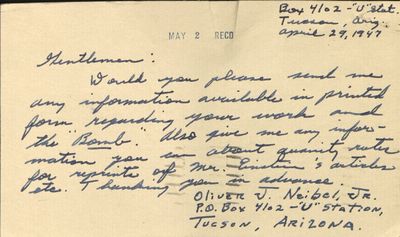 Box 4102-"U" Stat.
Tucson, Ariz.
April 29, 1947
MAY 2 RECD
Gentlemen:
Would you please send me
any information available in printed
form regarding your work and
the "Bomb". Also give me any infor-
mation you can about quanity rates
for reprints of Mr. Einstein's articles
etc. Thanking you in advance.
Oliver J. Neibel, Jr.
P.O. Box 4102-"U" Station,
Tucson, Arizona.